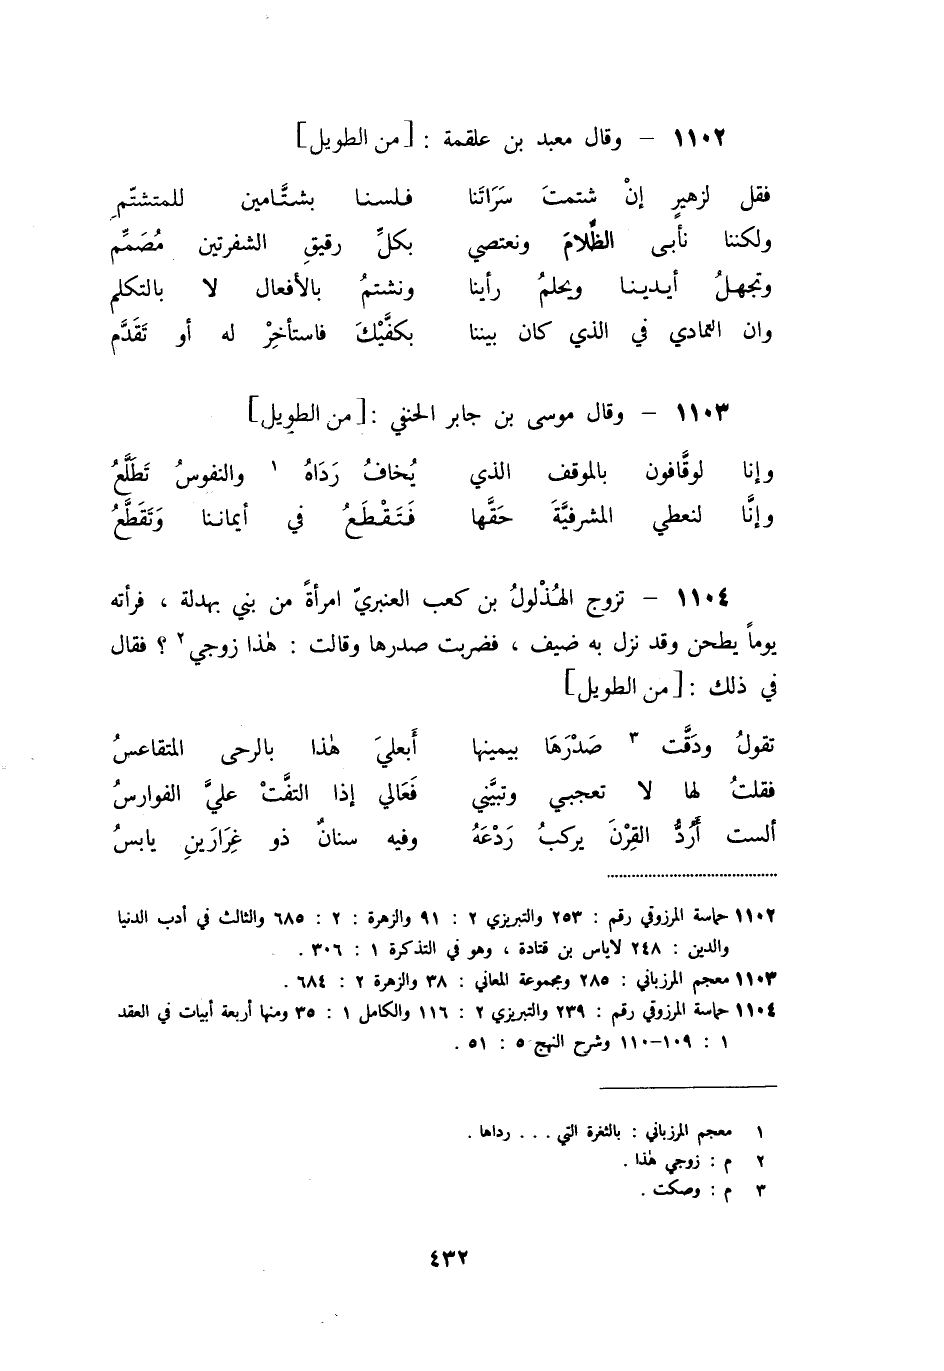 ١١٠٢ – وقال معبد بن علقمة : [من الطويل]
فقل لزهيرٍ إنْ شتمتَ سَرَاتَنا فلسنا بشتَّامين للمتشتّمِ
ولكننا نأبى الظَّلامَ ونعتصي بكلِّ رقيقِ الشفرتين مُصَمِّم
وتجهلُ أيدينا ويحلمُ رأينا ونشتمُ بالأفعال لا بالتكلم
وان التمادي في الذي كان بيننا بكفَّيْكَ فاستأخِرْ له أو تَقَدَّم
١١٠٣ – وقال موسى بن جابر الحنفي : [من الطويل]
وإنا لوقَّافون بالموقف الذي يُخافُ رَدَاهُ ١ والنفوسُ تَطَلَّعُ
وإنَّا لنعطي المشرفيَّةَ حَقَّها فَتَقْطَعُ في أيماننا وَتَقَطَّعُ
١١٠٤ – تزوج الهُذْلولُ بن كعب العنبريّ امرأةً من بني بهدلة ، فرأته
يوماً يطحن وقد نزل به ضيف ، فضربت صدرها وقالت : هٰذا زوجي ٢ ؟ فقال
في ذلك : [من الطويل]
تقولُ ودَقَّت ٣ صَدْرَهَا بيمينها أَبعليَ هٰذا بالرحى المتقاعسُ
فقلتُ لها لا تعجبي وتبيَّني فَعَالي إذا التفَّتْ عليَّ الفوارسُ
ألست أَرُدُّ القِرْنَ يركبُ رَدْعَهُ وفيه سنانٌ ذو غِرَارَينِ يابسُ
١١٠٢ حماسة المرزوقي رقم : ٢٥٣ والتبريزي ٢ : ٩١ والزهرة : ٢ : ٦٨٥ والثالث في أدب الدنيا
والدين : ٢٤٨ لاياس بن قتادة ، وهو في التذكرة ١ : ٣٠٦ .
١١٠٣ معجم المرزباني : ٢٨٥ ومجموعة المعاني : ٣٨ والزهرة ٢ : ٦٨٤ .
١١٠٤ حماسة المرزوقي رقم : ٢٣٩ والتبريزي ٢ : ١١٦ والكامل ١ : ٣٥ ومنها أربعة أبيات في العقد
١ : ١٠٩–١١٠ وشرح النهج ٥ : ٥١ .
١ معجم المرزباني : بالثغرة التي ... رداها .
٢ م : زوجي هٰذا .
٣ م : وصكت .
٤٣٢